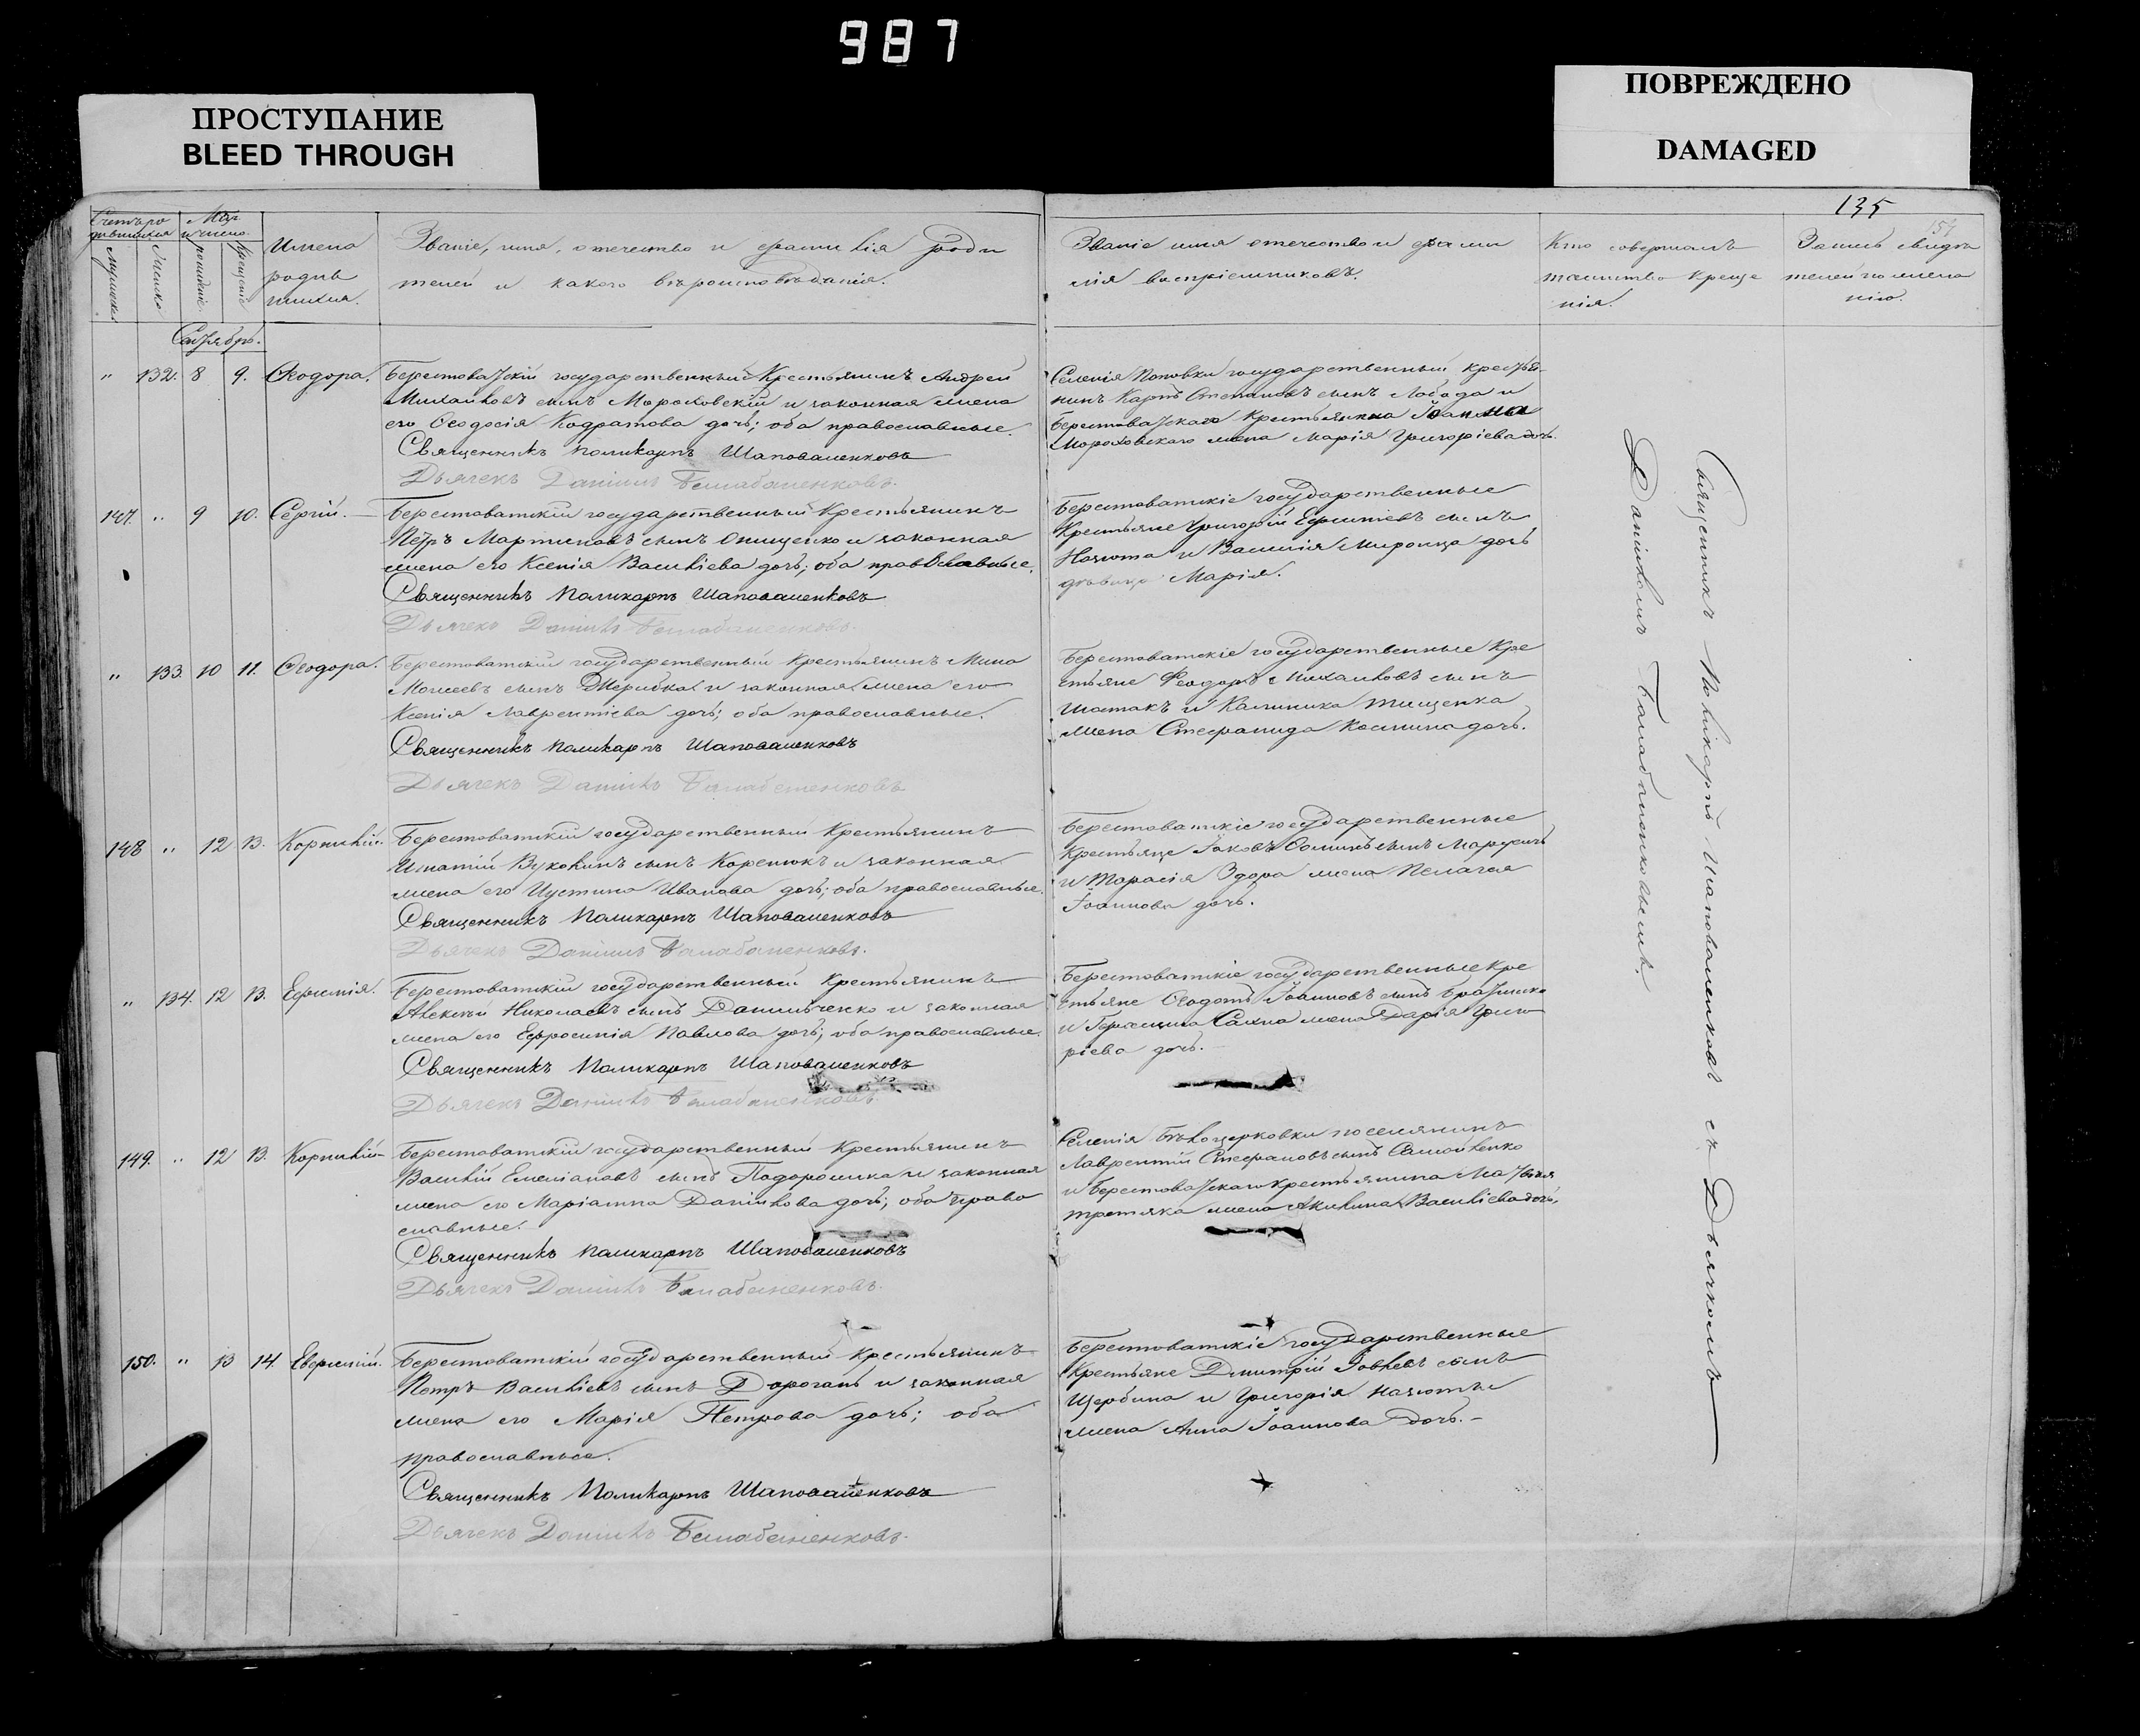 987
ПРОСТУПАНИЕ
BLEED THROUGH
ПОВРЕЖДЕНО
DAMAGED
135
Счетъ ро
дившихся
Мѣс.
и число.
мужеска
женска
рожденіе
крещеніе
Имена
родив
шихся.
Званіе, имя, отечество и фамилія роди
телей и какого вѣроисповѣданія.
Званіе имя отечество и фами
лія воспріемниковъ.
Кто совершалъ
таинство креще
нія.
телей по жела
нію.
" 132. 8 9. Ѳеодора.
Берестоватскій государственный Крестьянинъ Андрей
Михайловъ сынъ Мороховскій и законная жена
его Ѳеодосія Кодратова дочь; оба православные.
Священникъ Поликарпъ Шаповаленковъ
Дьячекъ Даніилъ Балабаненковъ.
Селенія Поповки государственный крестья-
нинъ Карпъ Степановъ сынъ Лобода и
Берестоватскаго Крестьянина Іоанна
Мороховскаго жена Марія Григоріева дочь.
147. " 9 10. Сергій.
Берестоватскій государственный Крестьянинъ
Петръ Мартиновъ сынъ Онищенко и законная
жена его Ксенія Василіева дочь; оба православные.
Священникъ Поликарпъ Шаповаленковъ
Дьячекъ Даніилъ Балабаненковъ.
Берестоватскіе государственные
Крестьяне Григорій Евфиміевъ сынъ
и Василія дочь
дѣвица Марія.
" 133. 10 11. Ѳеодора.
Берестоватскій государственный Крестьянинъ Мина
Моисеевъ сынъ и законная жена его
Ксенія Лаврентіева дочь; оба православные.
Священникъ Поликарпъ Шаповаленковъ
Дьячекъ Даніилъ Балабаненковъ
Берестоватскіе государственные Кре
стьяне Феодоръ Михаиловъ сынъ
Шостакъ и Калиника Тищенка
жена Стефанида Космина дочь.
148 " 12 13. Корнилій.
Берестоватскій государственный Крестьянинъ
Игнатій сынъ Коренюкъ и законная
жена его Иустина Иванова дочь; оба православные.
Священникъ Поликарпъ Шаповаленковъ
Дьячекъ Даніилъ Балабаненковъ.
Берестоватскіе государственные
Крестьяне Іаковъ сынъ
и Тарасія жена Пелагея
Іоаннова дочь.
" 134. 12 13. Евфимія.
Берестоватскій государственный Крестьянинъ
Алексѣй Николаевъ сынъ Данильченко и законная
жена его Ефросинія Павлова дочь; оба православные.
Священникъ Поликарпъ Шаповаленковъ
Дьячекъ Даніилъ Балабаненковъ.
Берестоватскіе государственные Кре
стьяне Ѳеодотъ Іоанновъ сынъ
и Герасима жена Дарія Григо
ріева дочь.
149. " 12 13. Корнилій
Берестоватскій государственный Крестьянинъ
Василій Емеліановъ сынъ и законная
жена его Маріанна Даніилова дочь; оба право
славные.
Священникъ Поликарпъ Шаповаленковъ
Дьячекъ Даніилъ Балабаненковъ.
Селенія Бѣлоцерковки поселянинъ
Лаврентій Стефановъ сынъ Самойленко
и Берестоватскаго Крестьянина Матвѣя
Третяка жена Акилина Василіева дочь.
150. " 13 14. Евфимій.
Берестоватскій государственный Крестьянинъ
Петръ Василіевъ сынъ Дорогань и законная
жена его Марія Петрова дочь; оба
православные.
Священникъ Поликарпъ Шаповаленковъ
Дьячекъ Даніилъ Балабаненковъ.
Берестоватскіе государственные
Крестьяне Дмитрій Іовлевъ сынъ
Щербина и Григорія
жена Анна Іоаннова дочь.
Священникъ Поликарпъ Шаповаленковъ съ Дьячкомъ
Даніиломъ Балабаненковымъ.